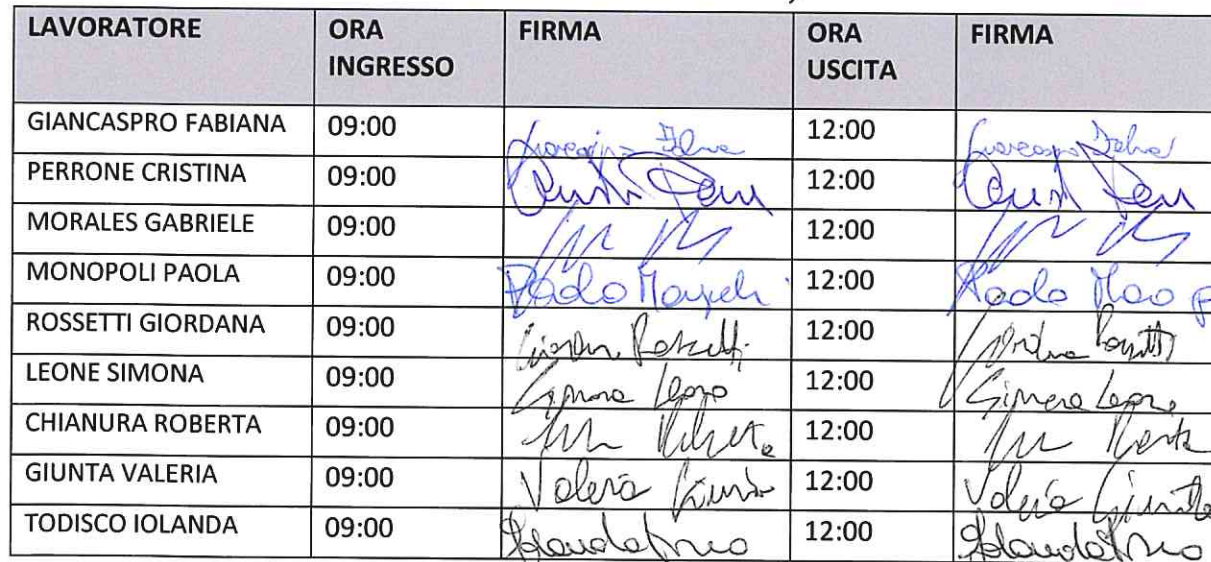 LAVORATORE ORA INGRESSO FIRMA ORA USCITA FIRMA
GIANCASPRO FABIANA 09:00 12:00
PERRONE CRISTINA 09:00 12:00
MORALES GABRIELE 09:00 12:00
MONOPOLI PAOLA 09:00 Paola 12:00 Paola
ROSSETTI GIORDANA 09:00 12:00
LEONE SIMONA 09:00 Simona Leone 12:00 Simona Leone
CHIANURA ROBERTA 09:00 12:00
GIUNTA VALERIA 09:00 Valeria Giunta 12:00 Valeria Giunta
TODISCO IOLANDA 09:00 12:00